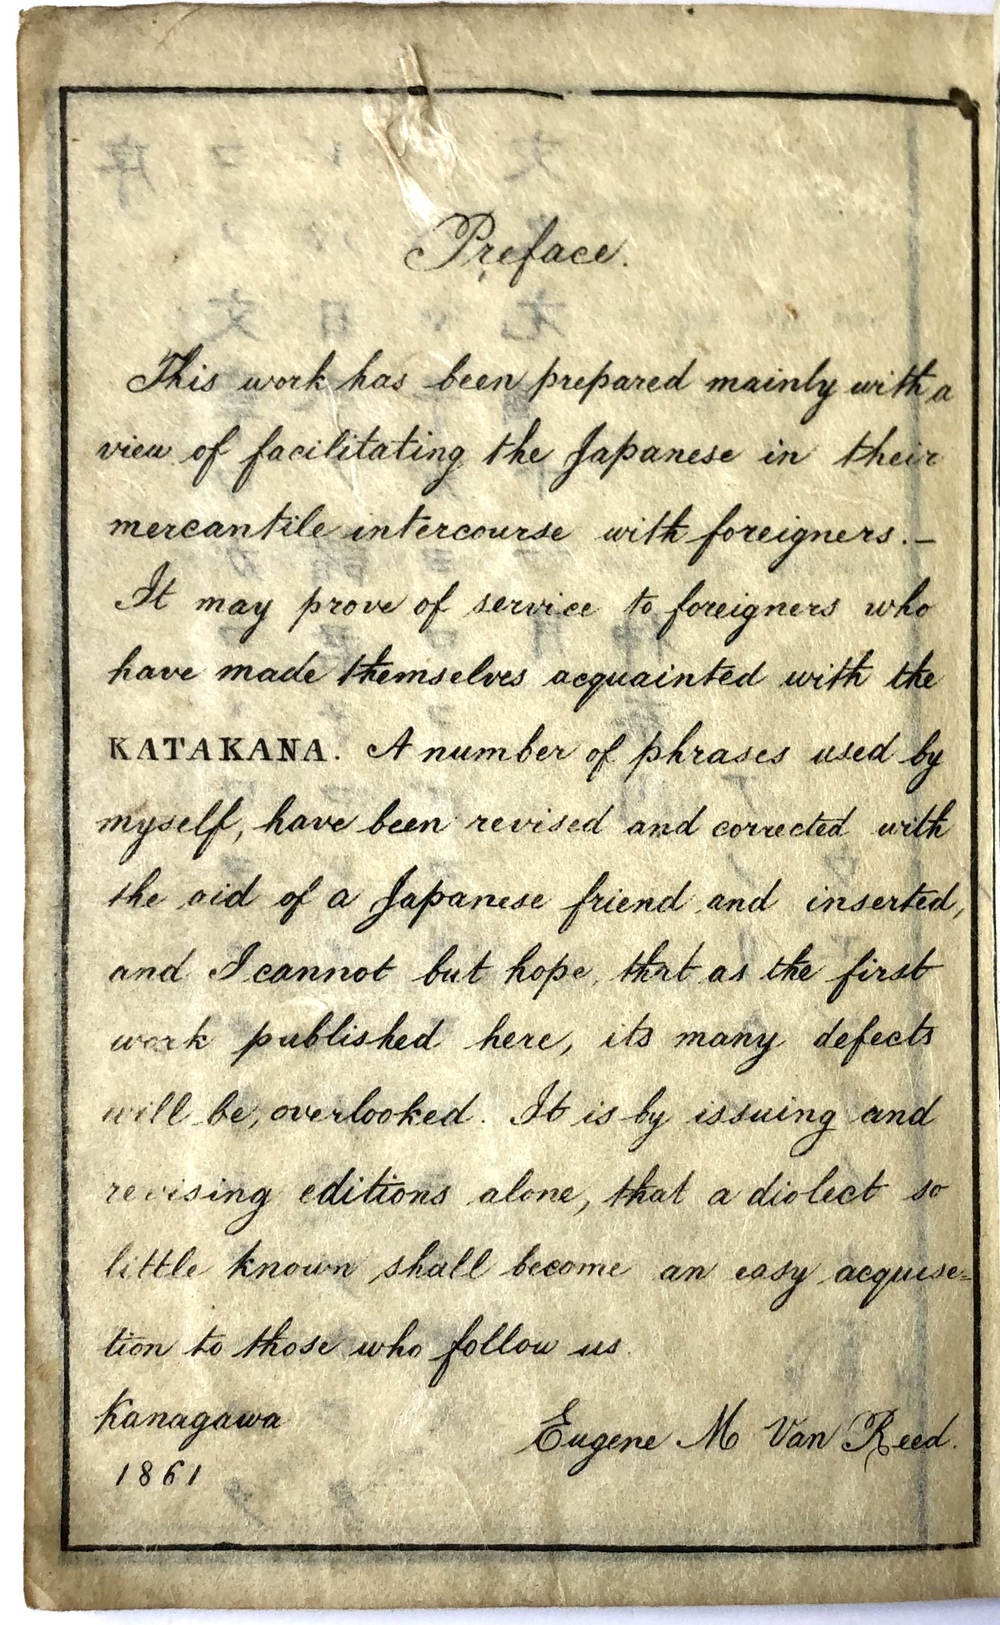 Preface.
This work has been prepared mainly with a
view of facilitating the Japanese in their
mercantile intercourse with foreigners.—
It may prove of service to foreigners who
have made themselves acquainted with the
KATAKANA. A number of phrases used by
myself, have been revised and corrected with
the aid of a Japanese friend and inserted,
and I cannot but hope, that as the first
work published here, its many defects
will be, overlooked. It is by issuing and
revising editions alone, that a dialect so
little known shall become an easy acquise=
tion to those who follow us.
Kanagawa
Eugene M Van Reed.
1861